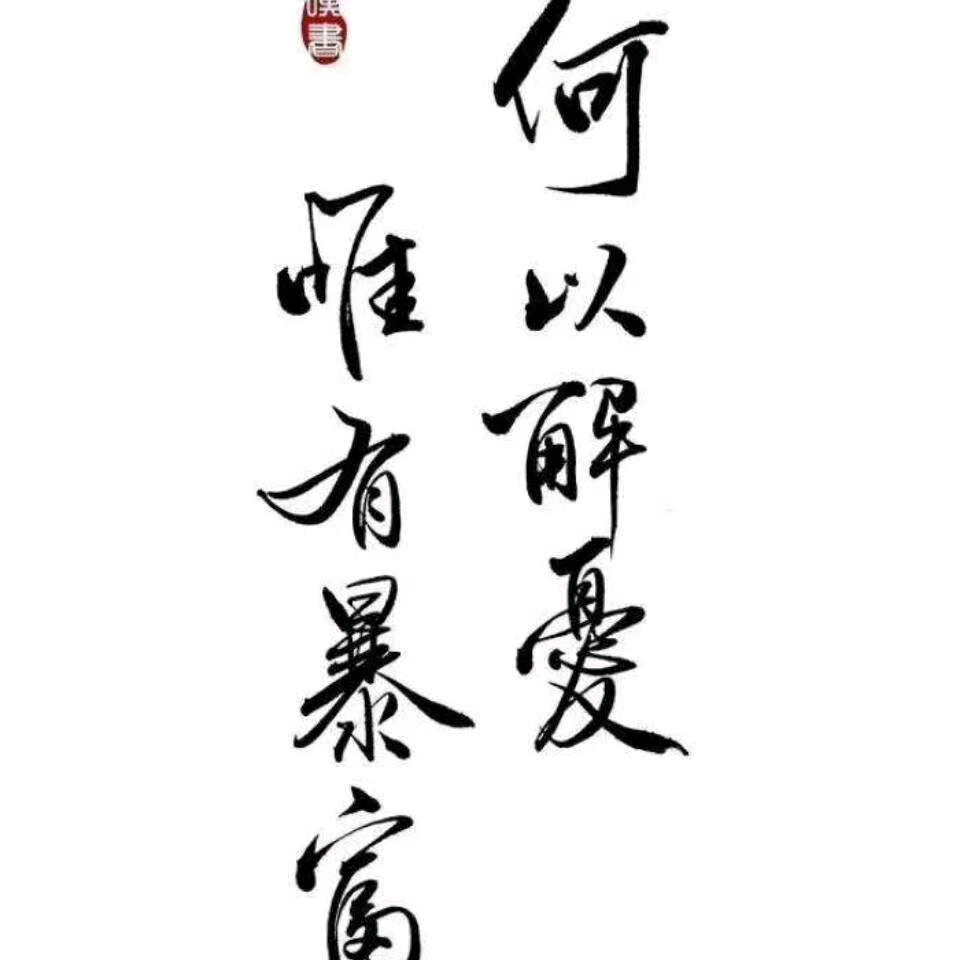 何以解憂
惟有暴富
書